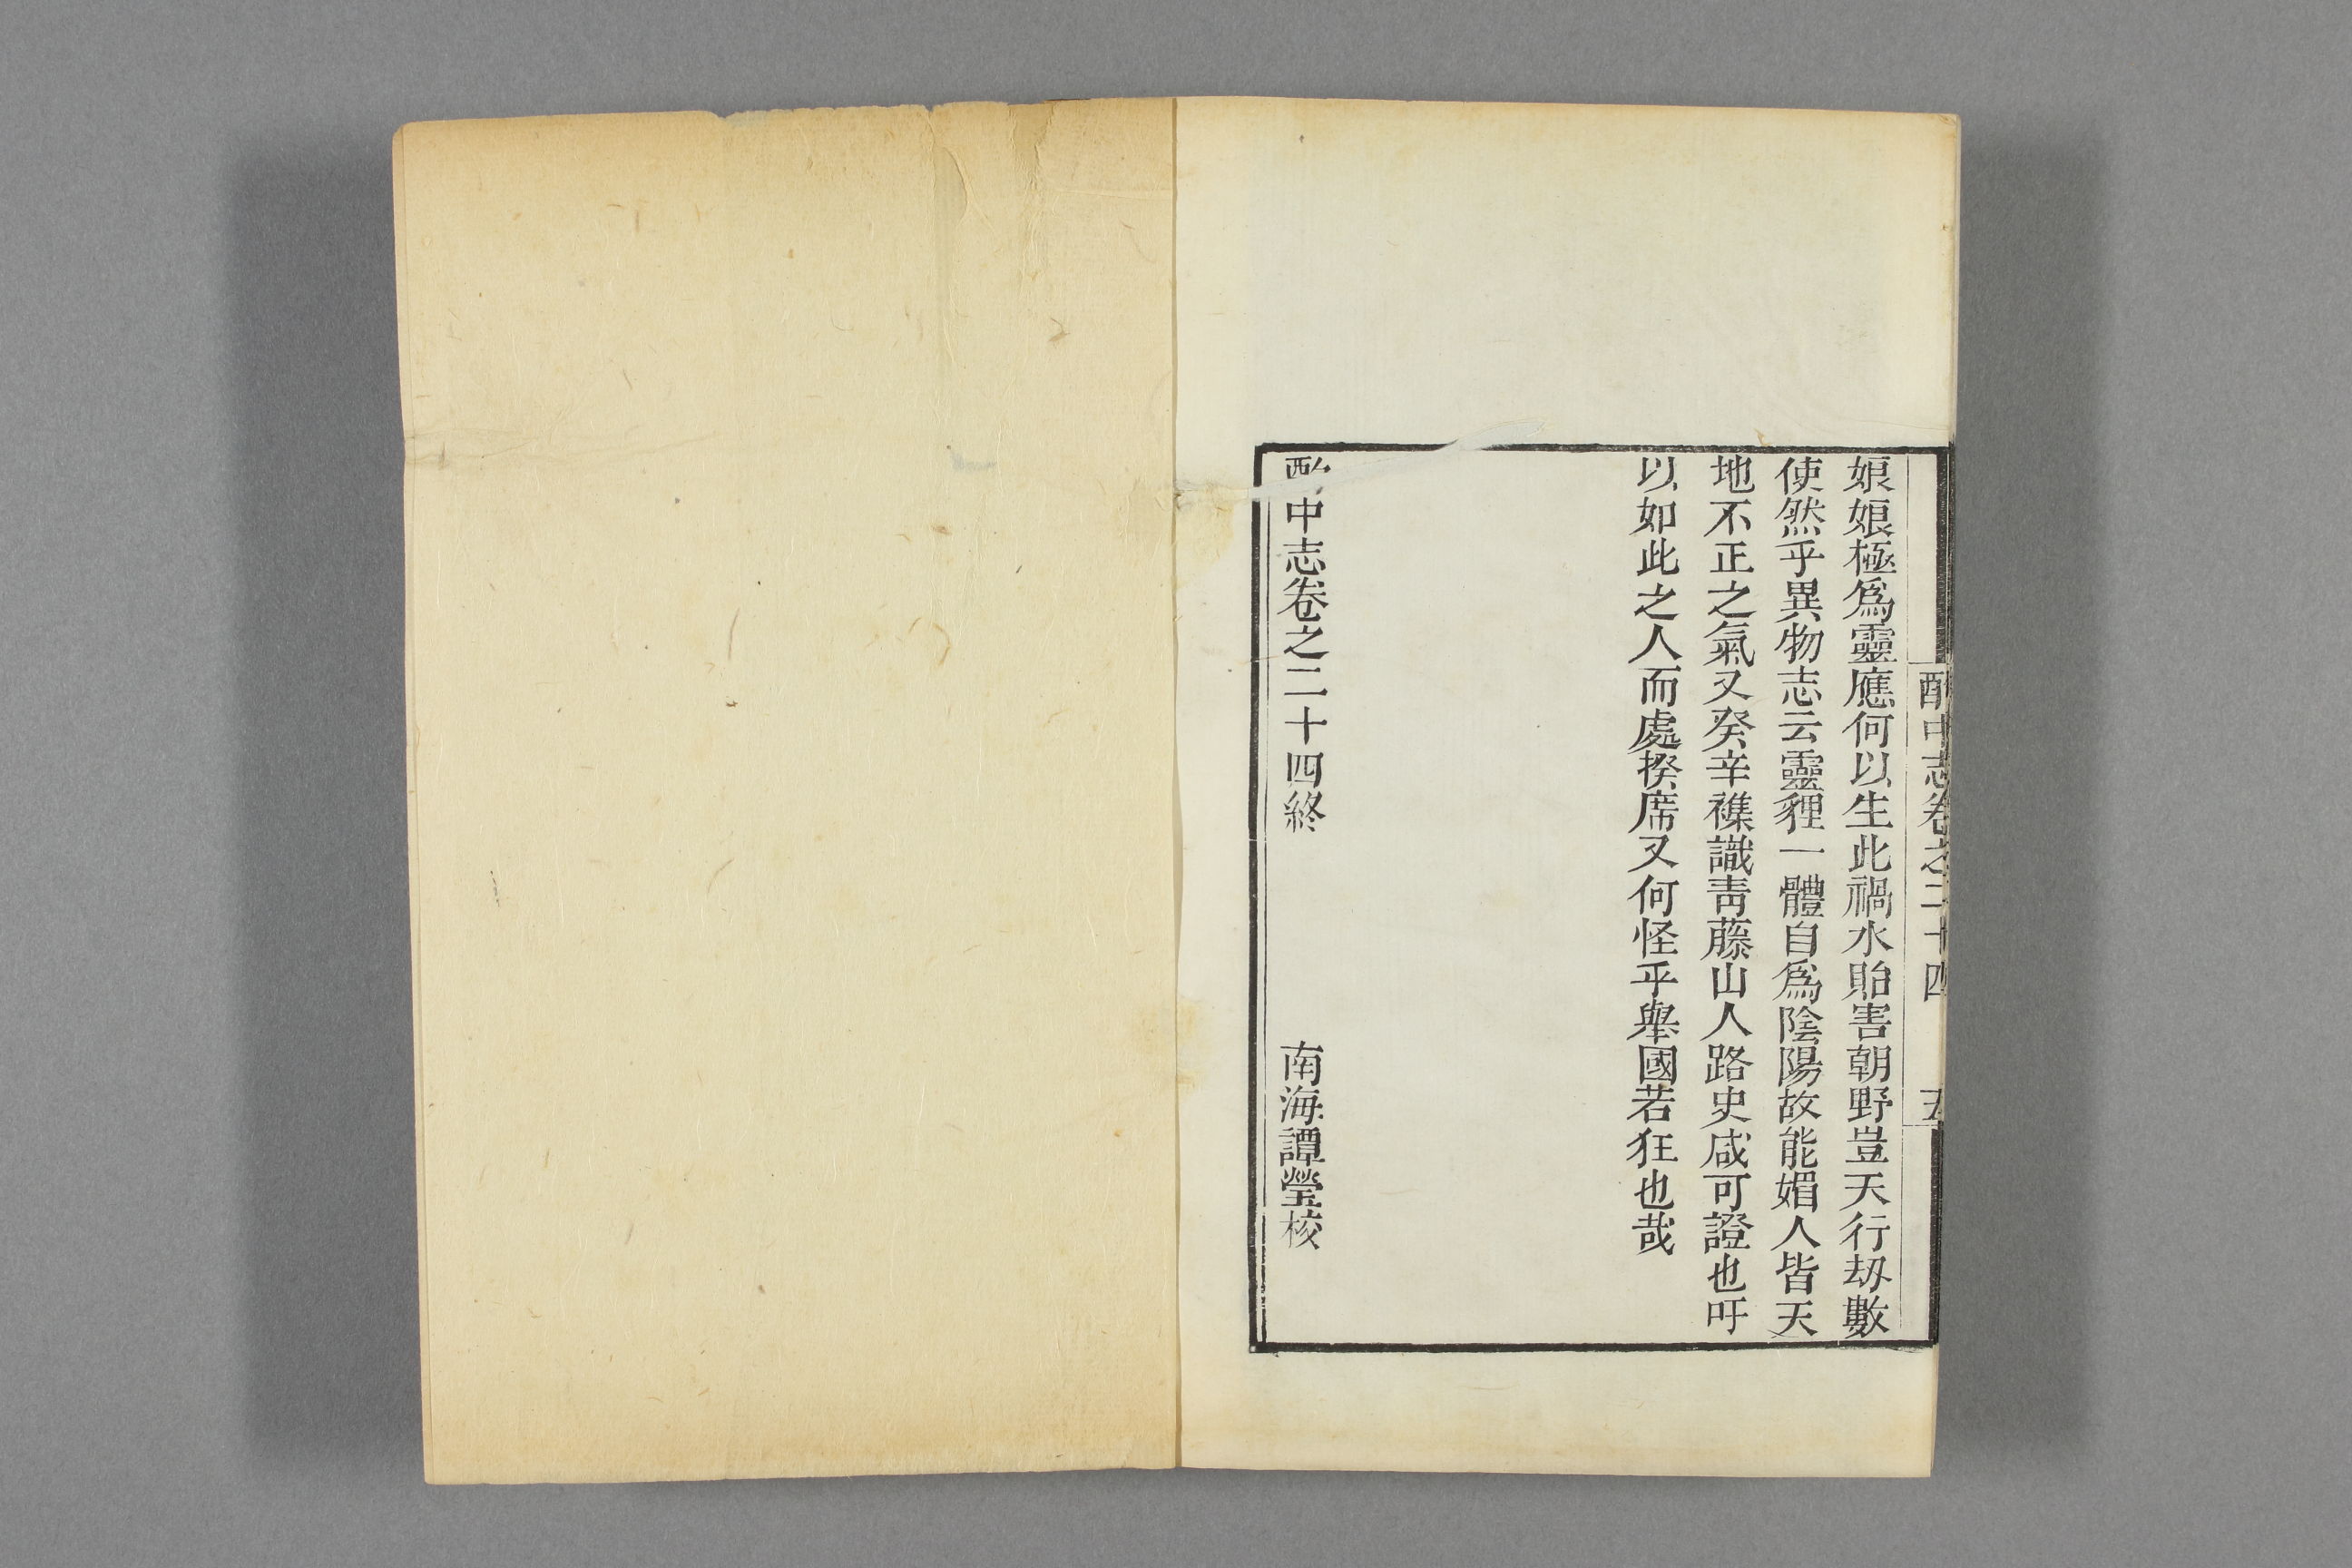 酌中志卷之二十四　五
娘娘極爲靈應何以生此禍水貽害朝野豈天行刼數
使然乎異物志云靈貍一體自爲陰陽故能媚人皆天
地不正之氣又癸辛襍識靑藤山人路史咸可證也吁
以如此之人而處揆席又何怪乎舉國若狂也哉
酌中志卷之二十四終　南海譚瑩校